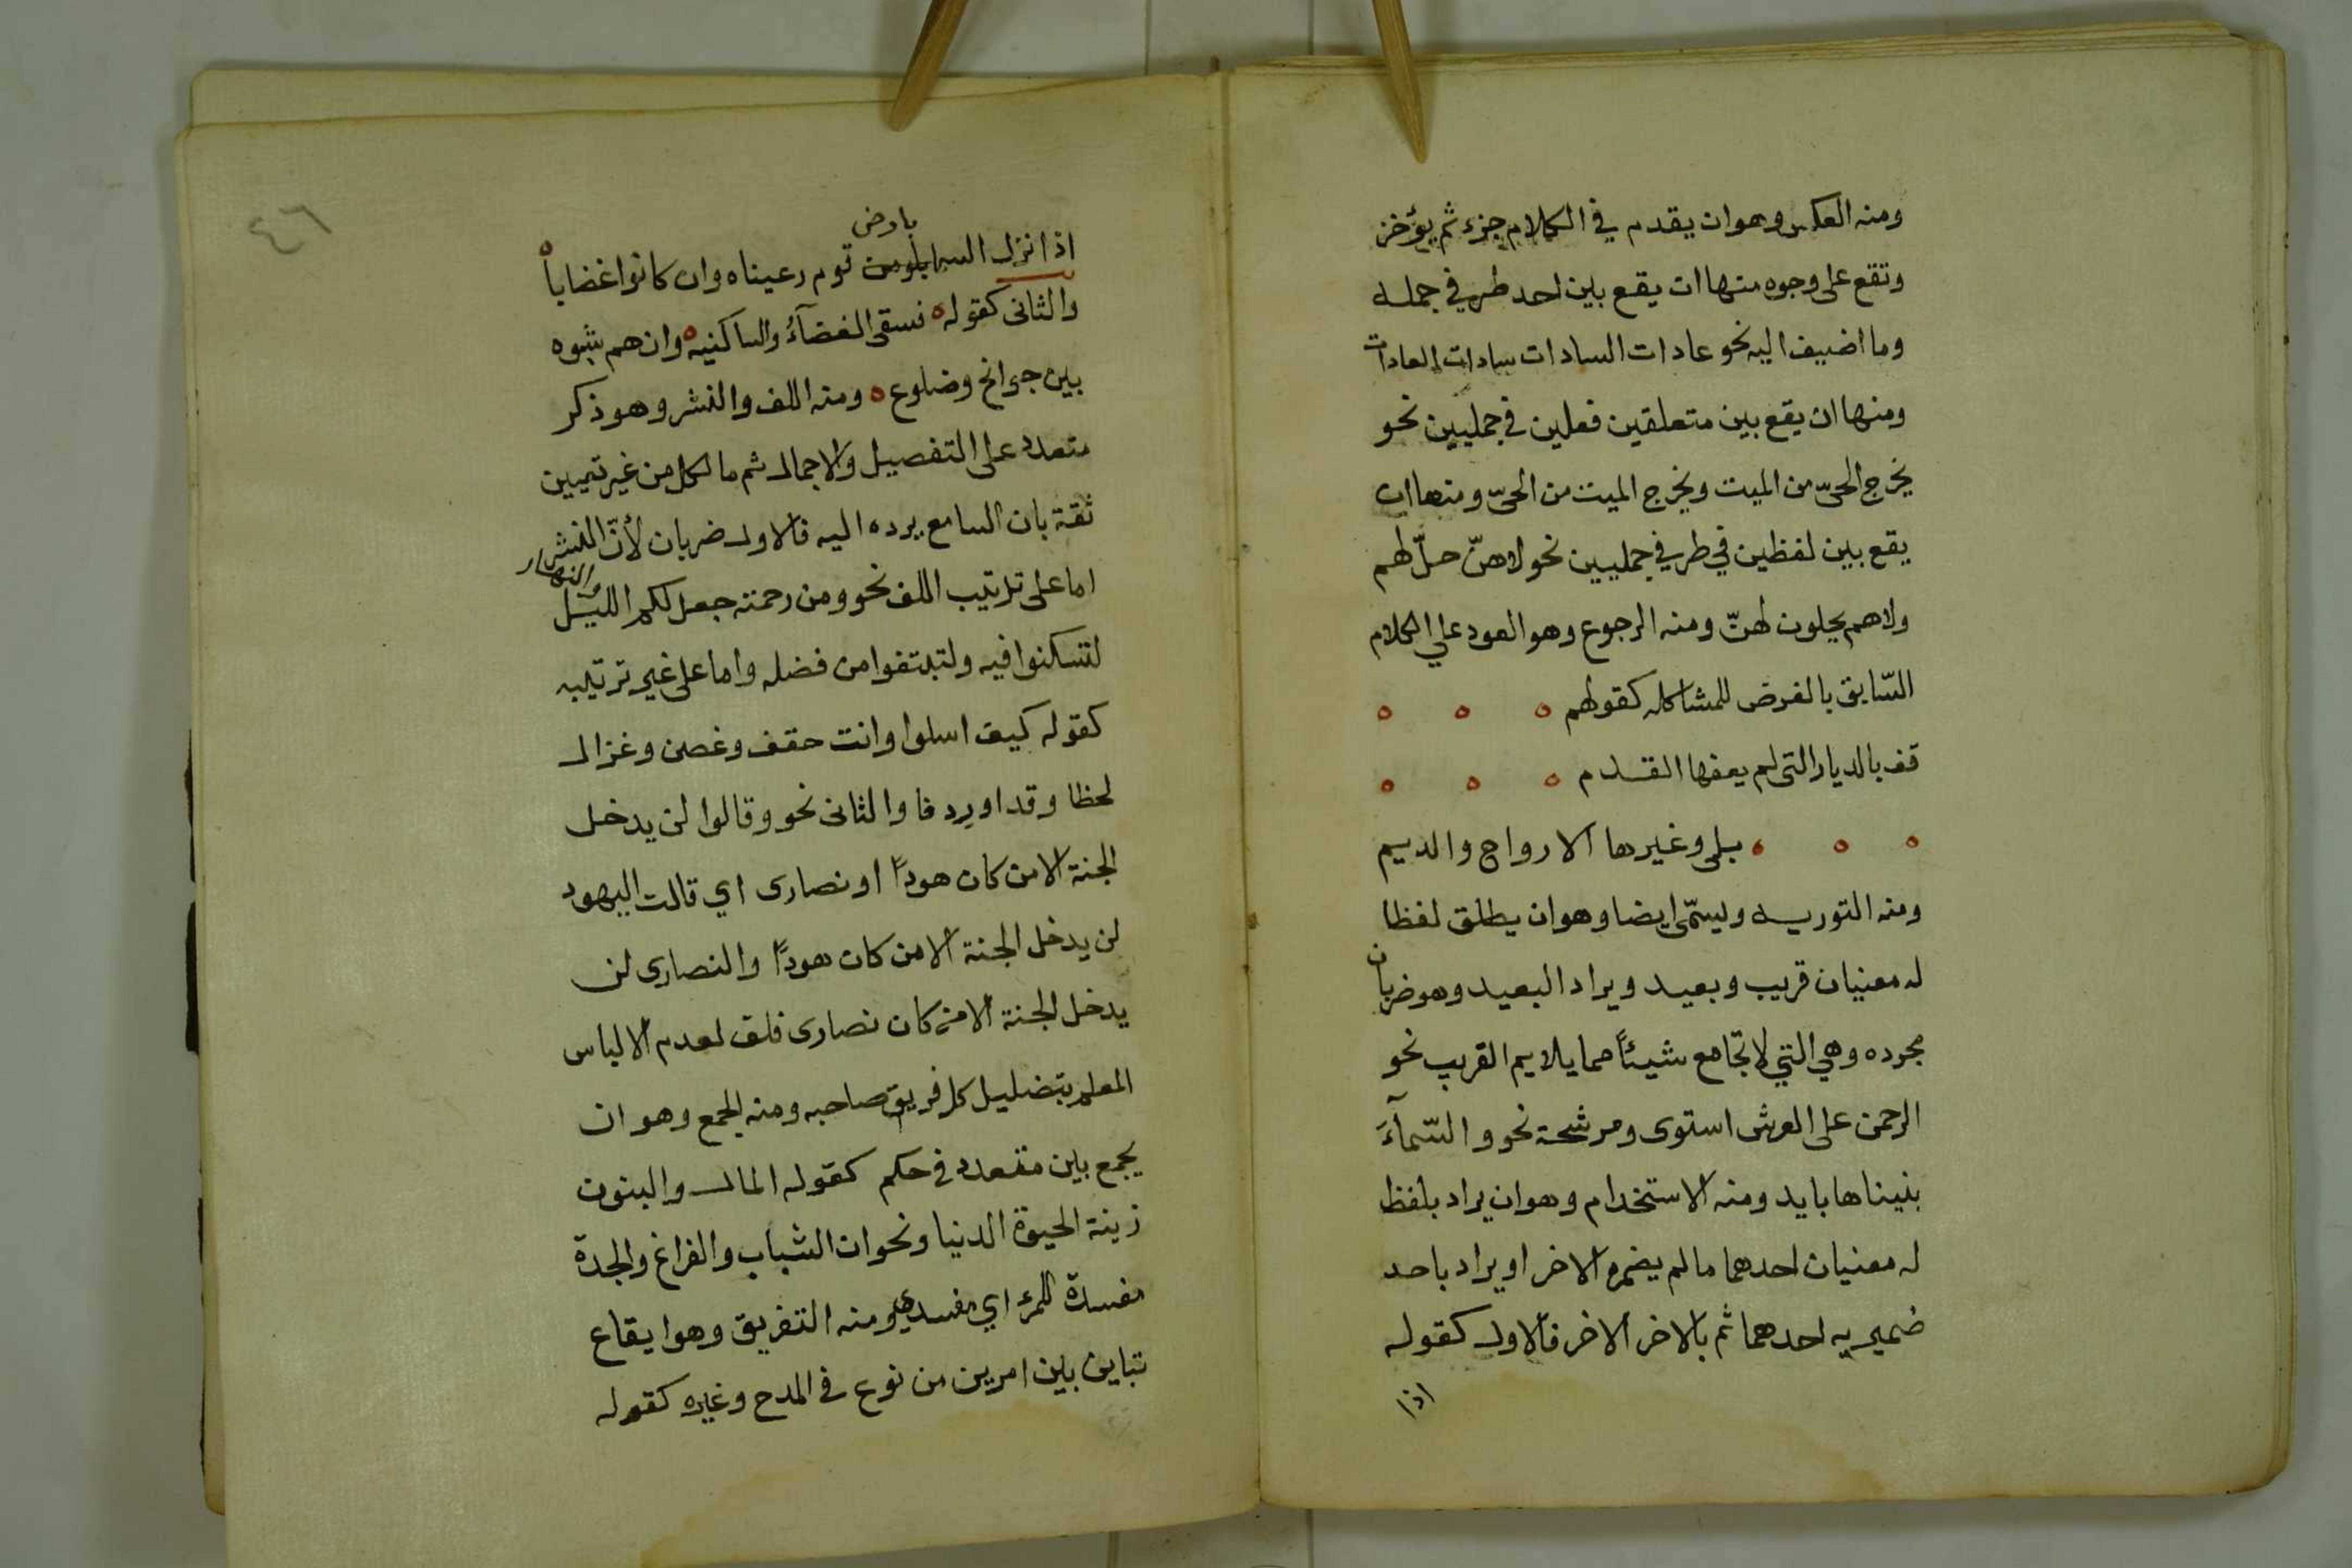 ومنه العكس وهو ان يقدم في الكلام جزء ثم يؤخر
وتقع على وجوه منها ان يقع بين احد طرفي جمله
وما اضيف اليه نحو عادات السادات سادات العادات
ومنها ان يقع بين متعلقين فعلين في جمليين نحو
يخرج الحيّ من الميت ويخرج الميت من الحيّ ومنها ان
يقع بين لفظين في طرفي جمليين نحو لا هنّ حلّ لهم
ولا هم يحلون لهنّ ومنه الرجوع وهو العود علي الكلام
السّابق بالفرض للمشاكله كقولهم
قف بالديار التى لم يعفها القدم
بلى وغيرها الارواح والديم
ومنه التوريه ويسمّى ايضا وهو ان يطلق لفظا
له معنيان قريب وبعيد ويراد البعيد وهو ضربان
مجرده وهي التي لا تجامع شيئاً مما يلايم القريب نحو
الرحمن على العرش استوى ومرشحة نحو والسّمآءَ
بنيناها بايد ومنه الاستخدام وهو ان يراد بلفظ
له معنيان احدهما مالم يضمره الاخر او يراد باحد
ضميريه احدهما ثم بالاخر الاخر فالاول كقوله
اذا
٤٦
بارض
اذا نزل السما قوم رعيناه وان كانوا غضاباً
والثانى كقوله فسقى الغضآءُ والساكنيه وان هم شبوه
بين جوانح وضلوع ومنه اللف والنشر وهو ذكر
متعدد على التفصيل والاجمال ثم ما لكل من غير تعيين
ثقة بان السامع يرده اليه فالاول ضربان لأنّ النشر
اما على ترتيب اللف نحو ومن رحمته جعل لكم الليل والنهار
لتسكنوا فيه ولتبتغوا من فضله واما على غير ترتيبه
كقوله كيف اسلوا وانت حقف وغصن وغزال
لحظا وقدا وردفا والثانى نحو وقالوا لن يدخل
الجنة الا من كان هوداً او نصارى اي قالت اليهود
لن يدخل الجنة الا من كان هوداً والنصارى لن
يدخل الجنة الا من كان نصارى فلف لعدم الالباس
المعلم بتضليل كل فريق صاحبه ومنه الجمع وهو ان
يجمع بين متعدد في حكم كقوله المال والبنون
زينة الحيوة الدنيا ونحو ان الشباب والفراغ والجدة
مفسدة للمرء اي مفسدة ومنه التفريق وهو ايقاع
تباين بين امرين من نوع في المدح وغيره كقوله